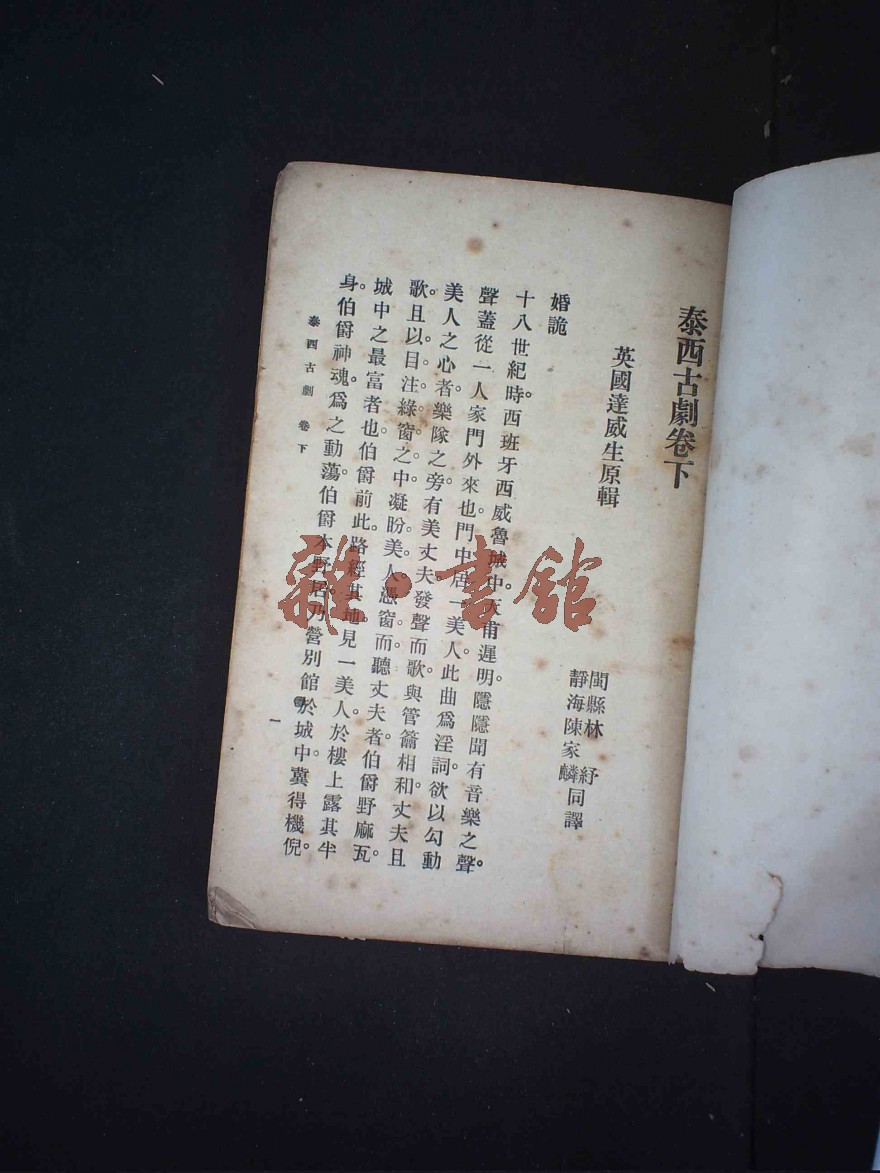 泰西古劇卷下
英國達威生原輯
閩縣林紓
靜海陳家麟同譯
婚詭
十八世紀時。西班牙西威魯城中。天甫遲明。隱隱聞有音樂之聲。
聲蓋從一人家門外來也。門中居一美人。此曲爲淫詞。欲以勾動
美人之心者。樂隊之旁。有美丈夫發聲而歌。與管籥相和。丈夫且
歌。且以目注綠窗之中。凝盼美人。美人憑窗而聽。丈夫者伯爵野麻瓦。
城中之最富者也。伯爵前此。路經其地。見一美人於樓上露其半
身。伯爵神魂爲之動蕩。伯爵本野居。乃營別館於城中。冀得機倪。
泰西古劇 卷下
一
雜·書館